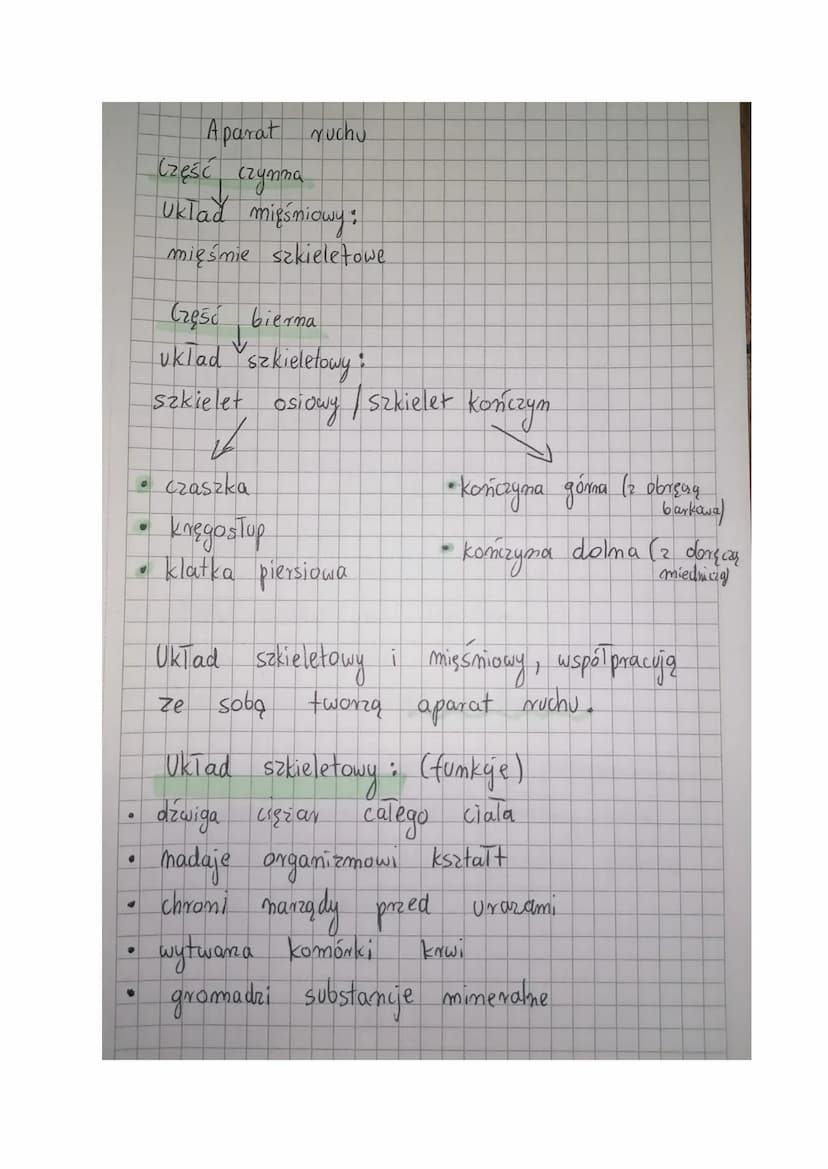 Aparat ruchu
Część czynna
Układ mięśniowy:
mięśnie szkieletowe
Część bierna
układ szkieletowy:
szkielet osiowy / szkielet kończyn
• czaszka
• kręgosłup
• klatka piersiowa
• kończyna górna (z obręczą
barkową)
• kończyna dolna (z
miednicią)
Układ szkieletowy i mięśniowy, współpracują
ze sobą tworzą aparat ruchu.
Układ szkieletowy: (funkcje)
• dźwiga ciężar całego ciała
• nadaje organizmowi kształt
• chroni narządy przed urazami
• wytwarza komórki krwi
• gromadzi substancje mineralne